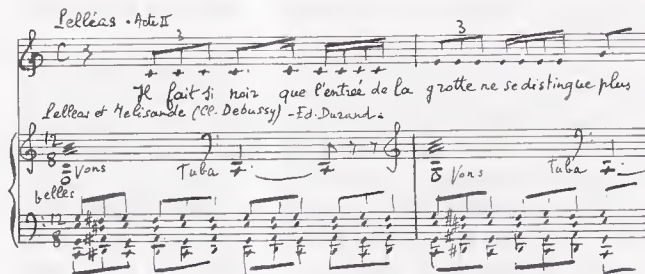 Pelléas . Acte II
3 3
Il fait si noir que l'entrée de la grotte ne se distingue plus
Pelléas et Melisande (Cl. Debussy) - Ed. Durand.
12 8
Vons Tuba Vons Tuba
belles
12 8